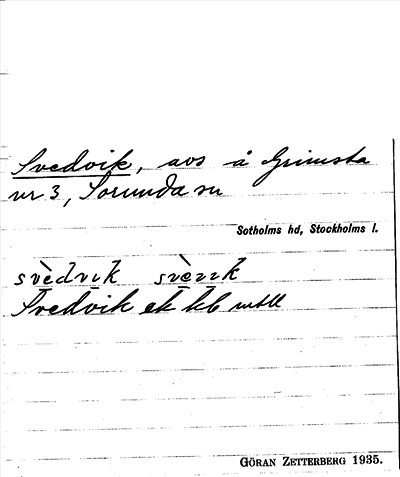 Svedvik, avs å Grimsta
nr 3, Sorunda sn
Sotholms hd, Stockholms l.
svèdvɩk
Svedvik ek kb
GÖRAN ZETTERBERG 1935.